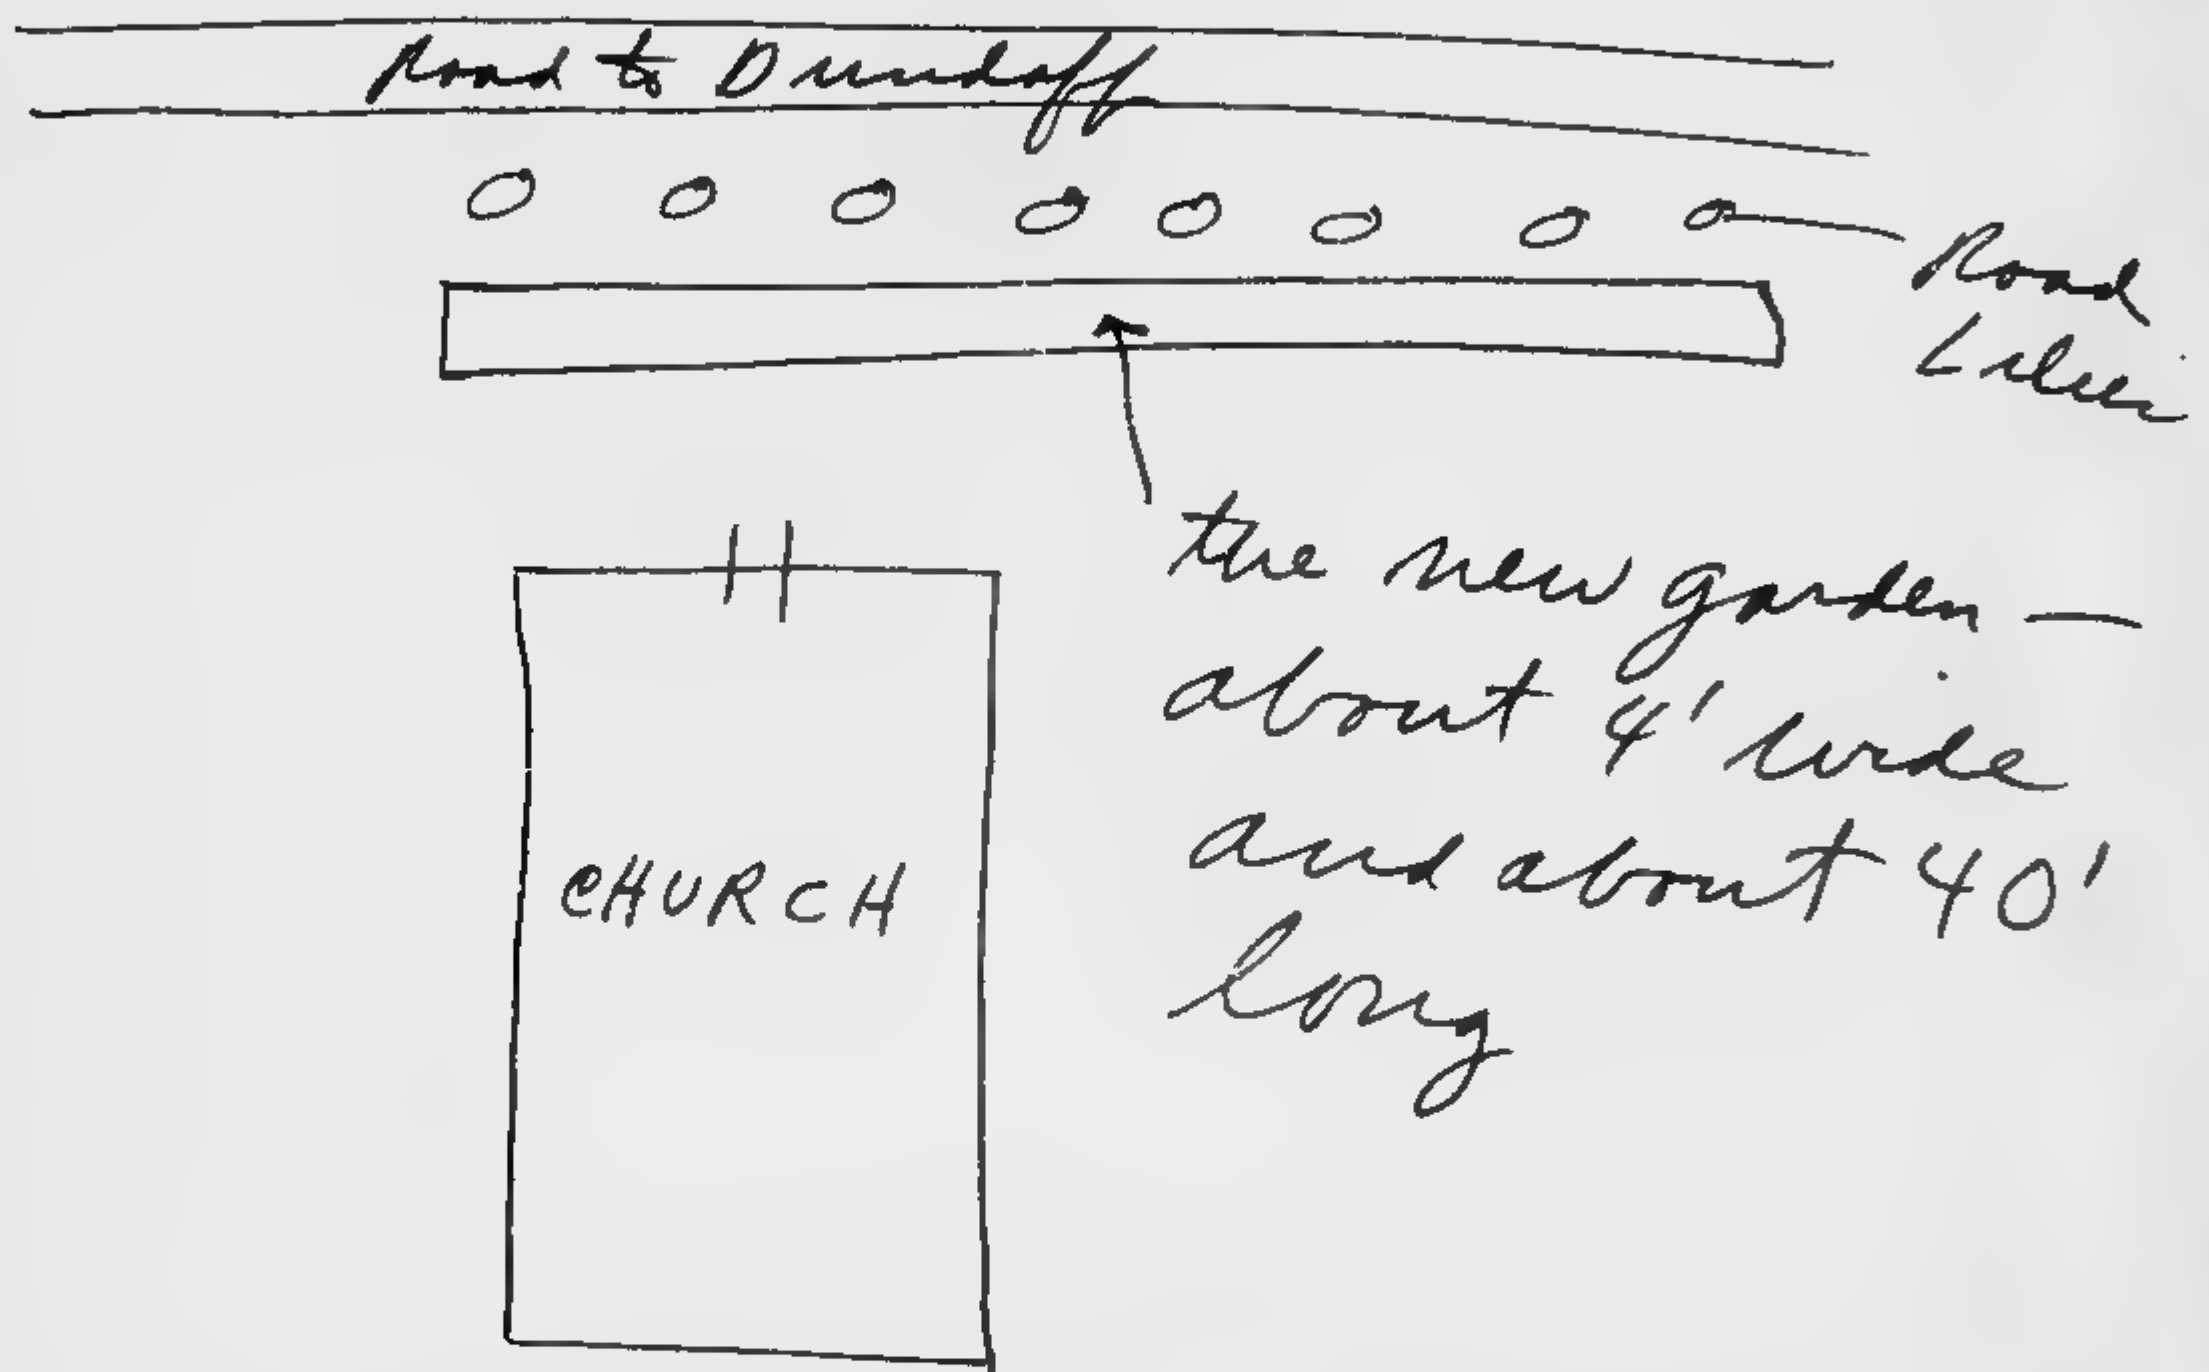 Road to Dundaff
Road
Lilies
the new garden —
about 4' wide
and about 40'
long
CHURCH